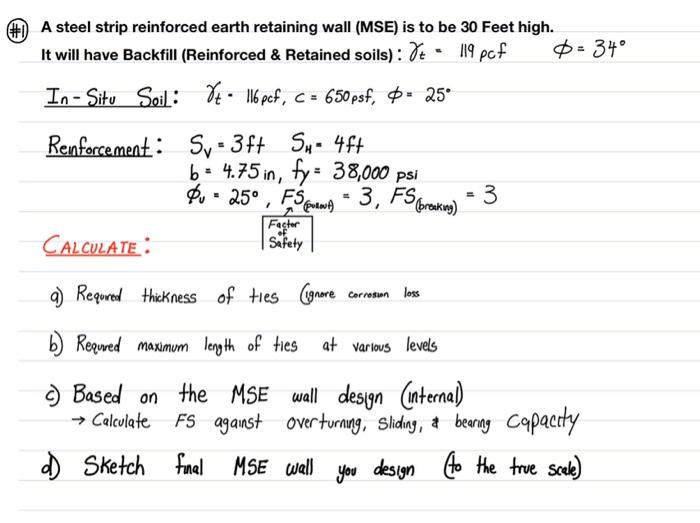 #1) A steel strip reinforced earth retaining wall (MSE) is to be 30 Feet high.
It will have Backfill (Reinforced & Retained soils) : γt = 119 pcf φ = 34°
In-Situ Soil: γt = 116 pcf, c = 650 psf, φ = 25°
Reinforcement: Sv = 3ft SH = 4ft
b = 4.75 in, fy = 38,000 psi
φu = 25°, FS(pullout) = 3, FS(breaking) = 3
Factor
of
Safety
CALCULATE:
a) Required thickness of ties (ignore corrosion loss
b) Required maximum length of ties at various levels
c) Based on the MSE wall design (internal)
→ Calculate FS against overturning, Sliding, & bearing Capacity
d) Sketch final MSE wall you design (to the true scale)